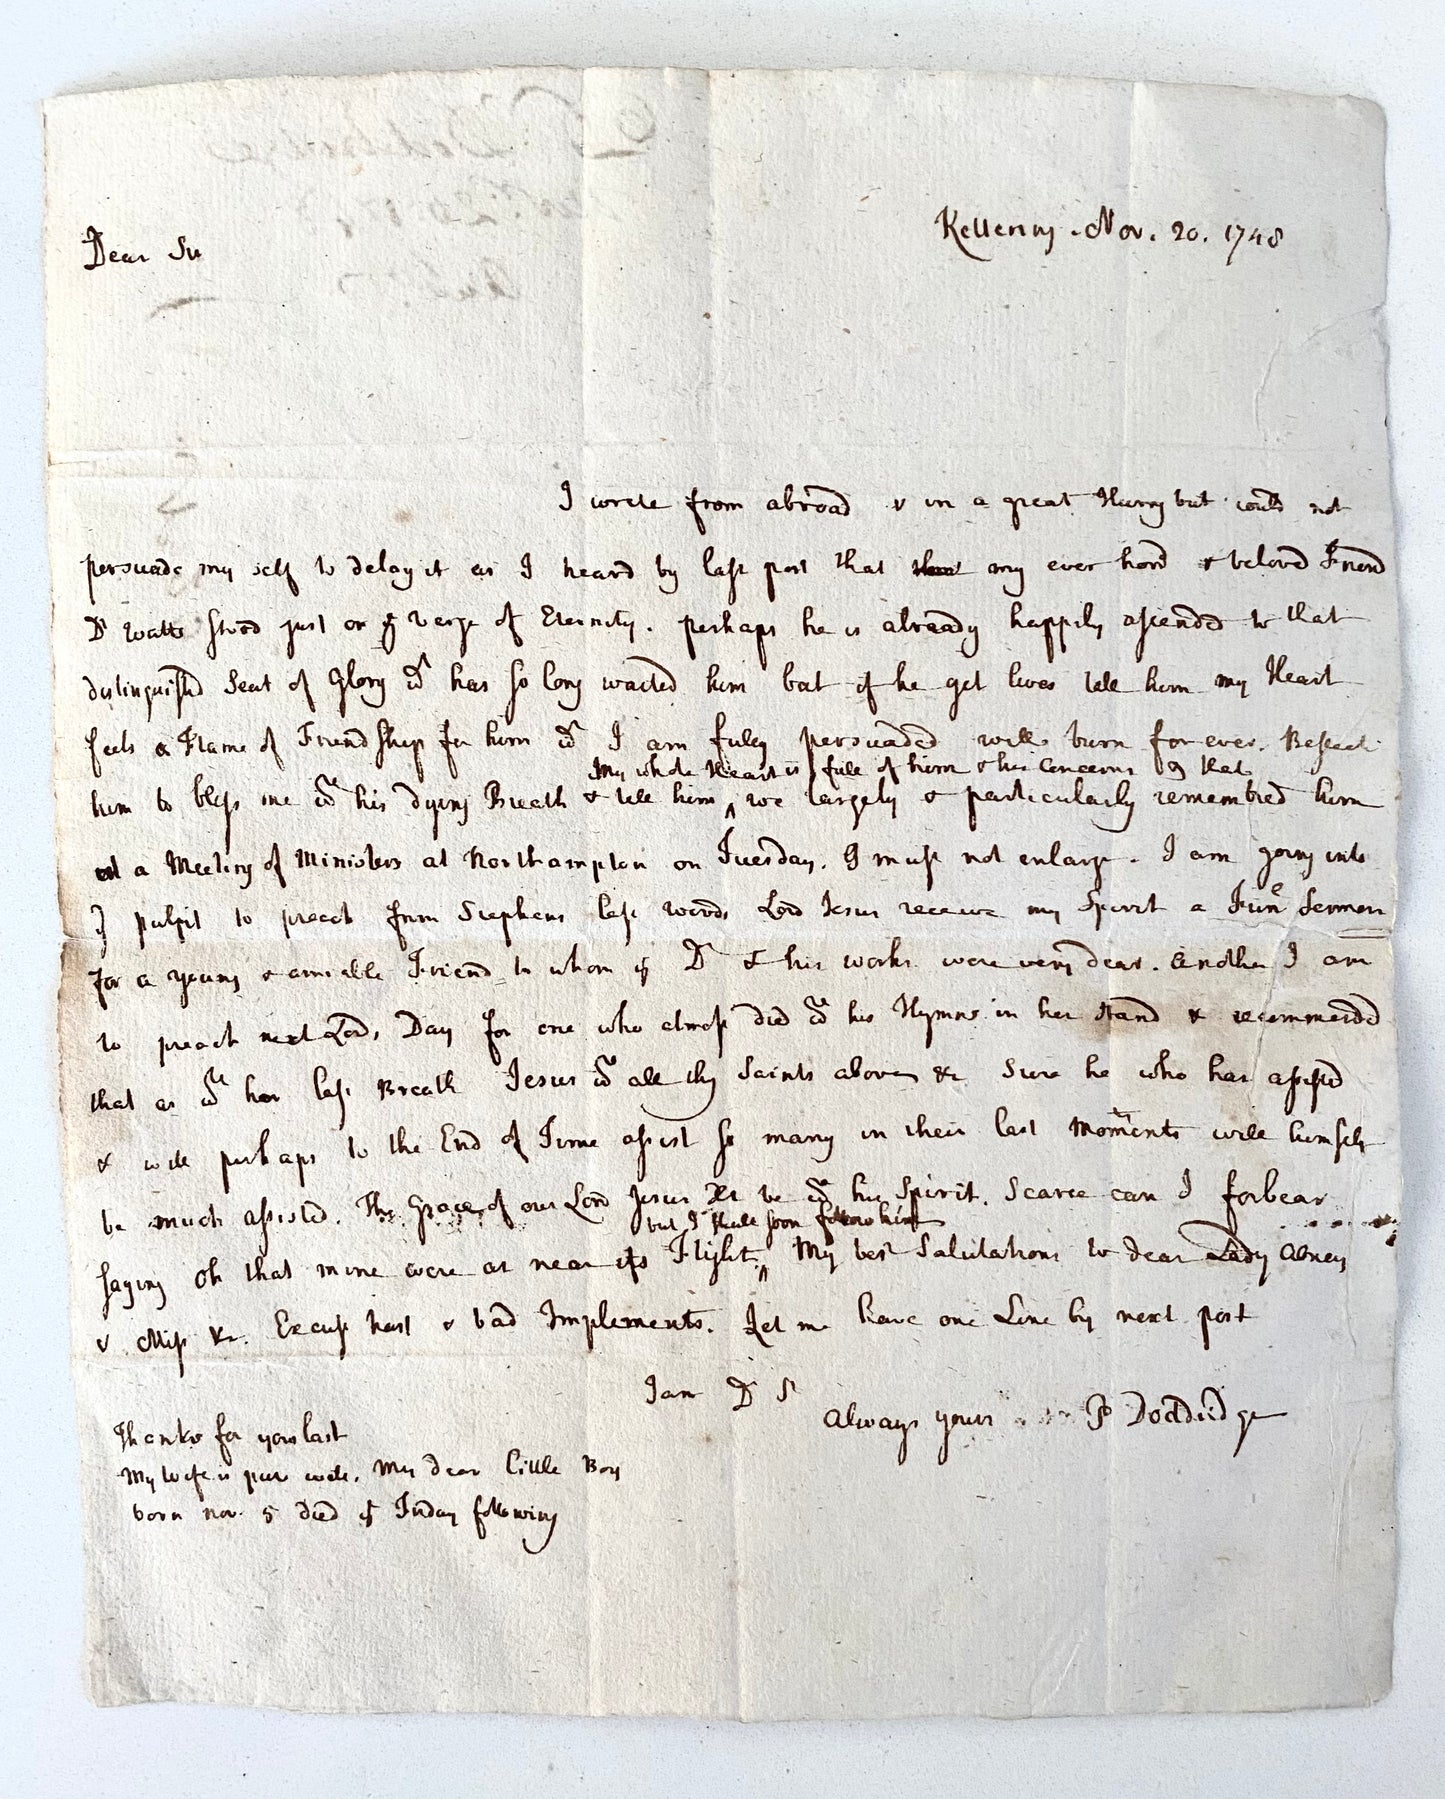 Kettering Nov. 20. 1748
Dear Sr
I write from abroad & in a great Hurry but could not
persuade my self to delay it as I heard by last post that my ever hond & beloved Friend
Dr Watts stood just on ye Verge of Eternity. perhaps he is already happily ascended to that
distinguished Seat of Glory wch has so long waited him but if he yet lives tell him my Heart
feels a Flame of Friendship for him wch I am fully persuaded will burn for ever. Beseech
My whole Heart is full of him & his Concerns & that
him to bless me wth his dying Breath & tell him ‸ we largely & particularly remembred him
at a Meeting of Ministers at Northampton on Tuesday. I must not enlarge. I am going into
ye pulpit to preach from Stephens last words Lord Jesus receive my Spirit a Funl Sermon
for a young & amiable Friend to whom ye Dr & his works were very dear. Another I am
to preach next Lords Day for one who almost died wth his Hymns in her Hand & recommended
that as wth her last Breath Jesus wth all thy Saints above &c Sure he who has assisted
& will perhaps to the End of Time assist so many in their last Moments will himself
be much assisted. The Grace of our Lord Jesus Xt be wth his Spirit. Scarce can I forbear
but I shall soon follow him
saying Oh that mine were as near its Flight. ‸ My best Salutations to dear Lady Abney
& Miss &c. Excuse hast & bad Implements. Let me have one Line by next post
I am Dr Sr
Always yours P Doddridge
Thanks for your last
My Wife is pure well. My dear little Boy
born nov. 5 died ye Friday following